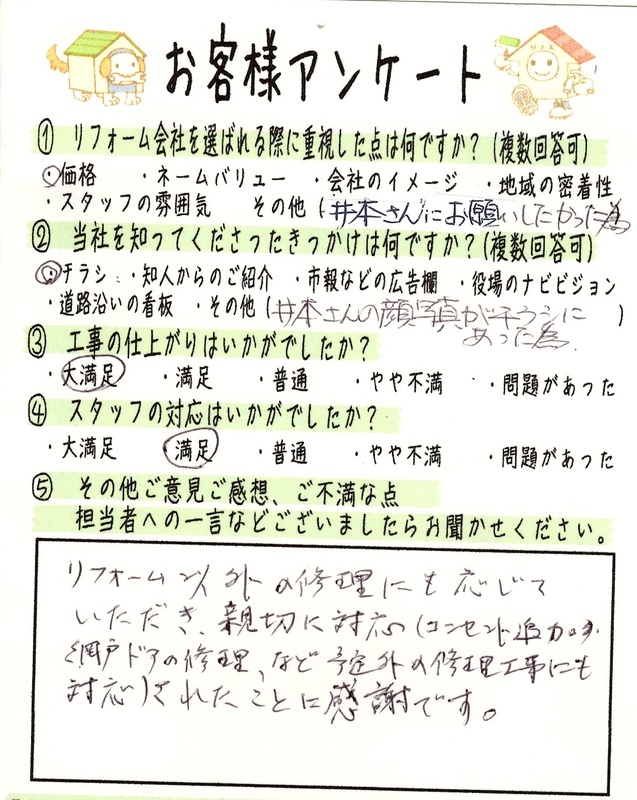 お客様アンケート
リノス
① リフォーム会社を選ばれる際に重視した点は何ですか？(複数回答可)
・価格 ・ネームバリュー ・会社のイメージ ・地域の密着性
・スタッフの雰囲気 その他(井本さんにお願いしたかった為
② 当社を知ってくださったきっかけは何ですか？(複数回答可)
・チラシ ・知人からのご紹介 ・市報などの広告欄 ・役場のナビビジョン
・道路沿いの看板 ・その他(井本さんの顔写真がチラシに )
あった為.
③ 工事の仕上がりはいかがでしたか？
・大満足 ・満足 ・普通 ・やや不満 ・問題があった
④ スタッフの対応はいかがでしたか？
・大満足 ・満足 ・普通 ・やや不満 ・問題があった
⑤ その他ご意見ご感想、ご不満な点
担当者への一言などございましたらお聞かせください。
リフォーム以外の修理にも応じて
いただき、親切に対応(コンセント追加
網戸ドアの修理、など予定外の修理工事にも
対応)されたことに感謝です。